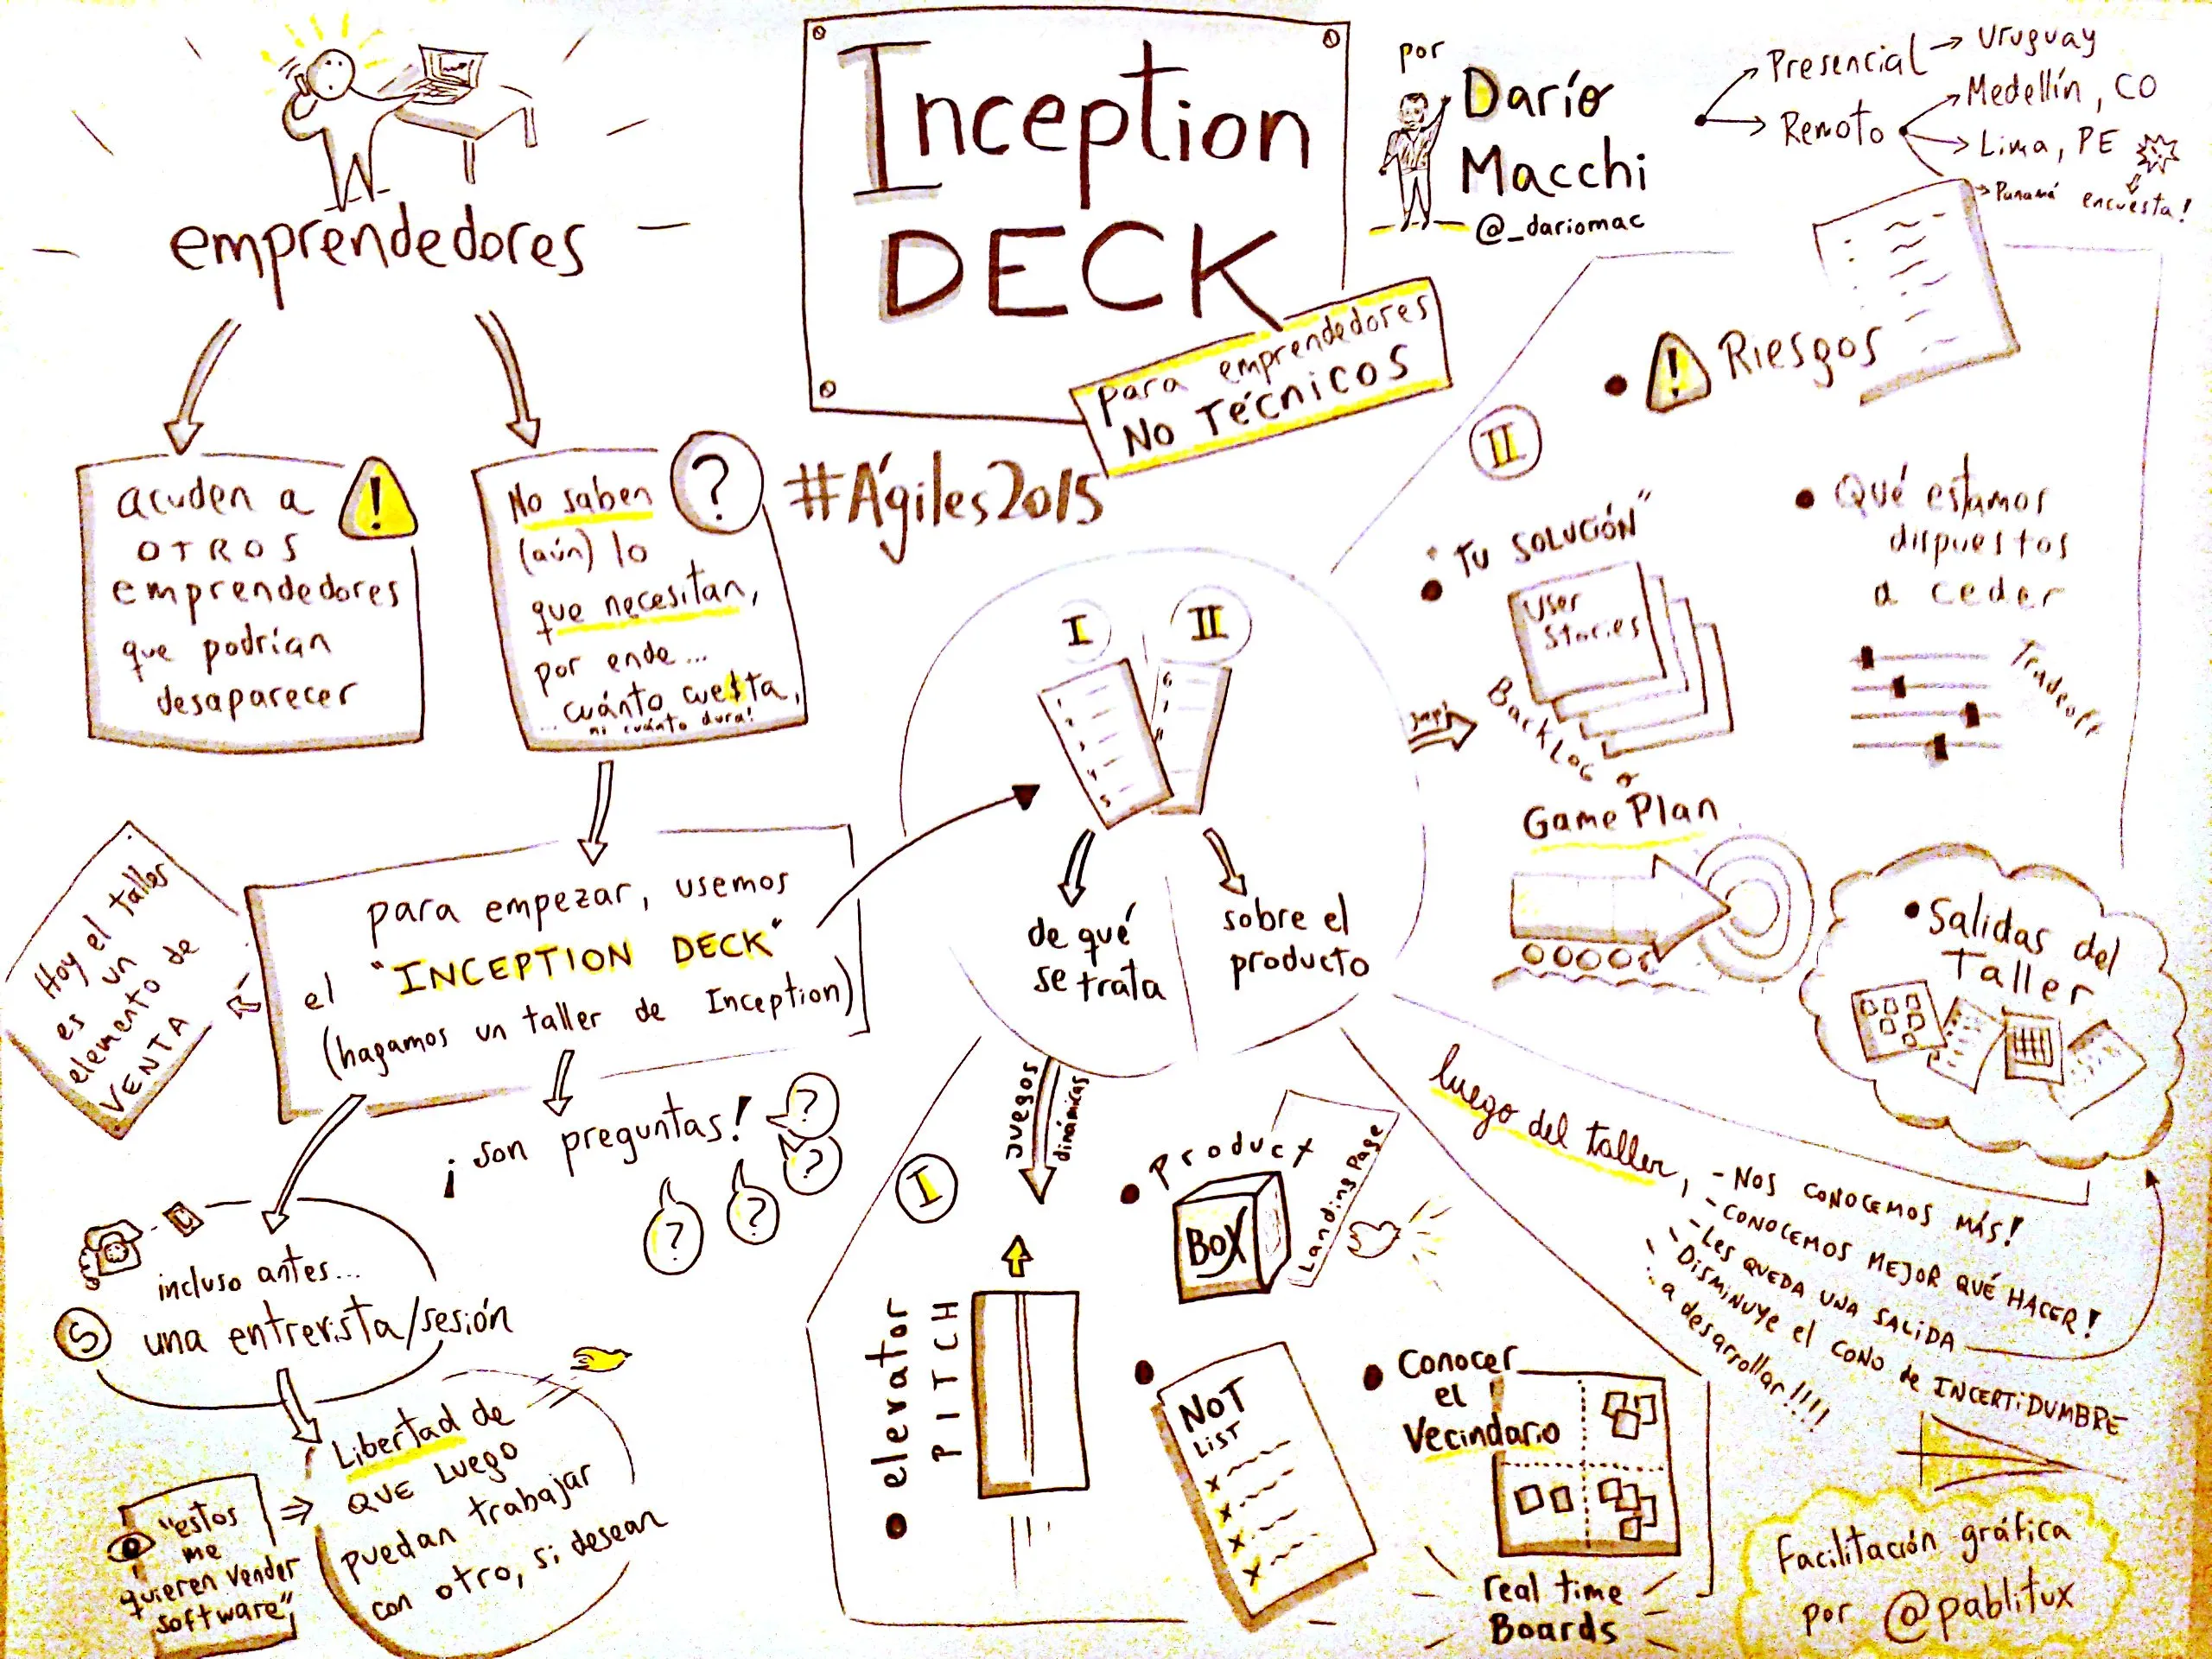 Inception
DECK
para emprendedores
No Técnicos
#Ágiles2015
por
Darío
Macchi
@_dariomac
Presencial → Uruguay
Remoto
Medellín, CO
Lima, PE
Panamá
encuesta!
emprendedores
acuden a
OTROS
emprendedores
que podrían
desaparecer
!
No saben
(aún) lo
que necesitan,
por ende...
cuánto cue$ta,
... ni cuánto dura!
?
para empezar, usemos
el "INCEPTION DECK"
(hagamos un taller de Inception)
Hoy el taller
es un
elemento de
VENTA
¡son preguntas!
?
?
?
?
incluso antes...
una entrevista/sesión
S
Libertad de
QUE LUEGO
puedan trabajar
con otro, si desean
"estos
me
quieren vender
software"
I
II
de qué
se trata
sobre el
producto
juegos
dinámicas
I
• elevator
PITCH
• Product
BOX
Landing Page
• NOT
LIST
• Conocer
el
Vecindario
real time
Boards
II
• ! Riesgos
• "TU SOLUCIÓN"
User
Stories
Backlog o
Game Plan
• Qué estamos
dispuestos
a ceder
Tradeoff
• Salidas del
Taller
luego del taller,
- NOS CONOCEMOS MÁS!
- CONOCEMOS MEJOR QUÉ HACER!
- LES QUEDA UNA SALIDA
- DISMINUYE el CONO de INCERTIDUMBRE
... a desarrollar!!!!
Facilitación gráfica
por @pablitux